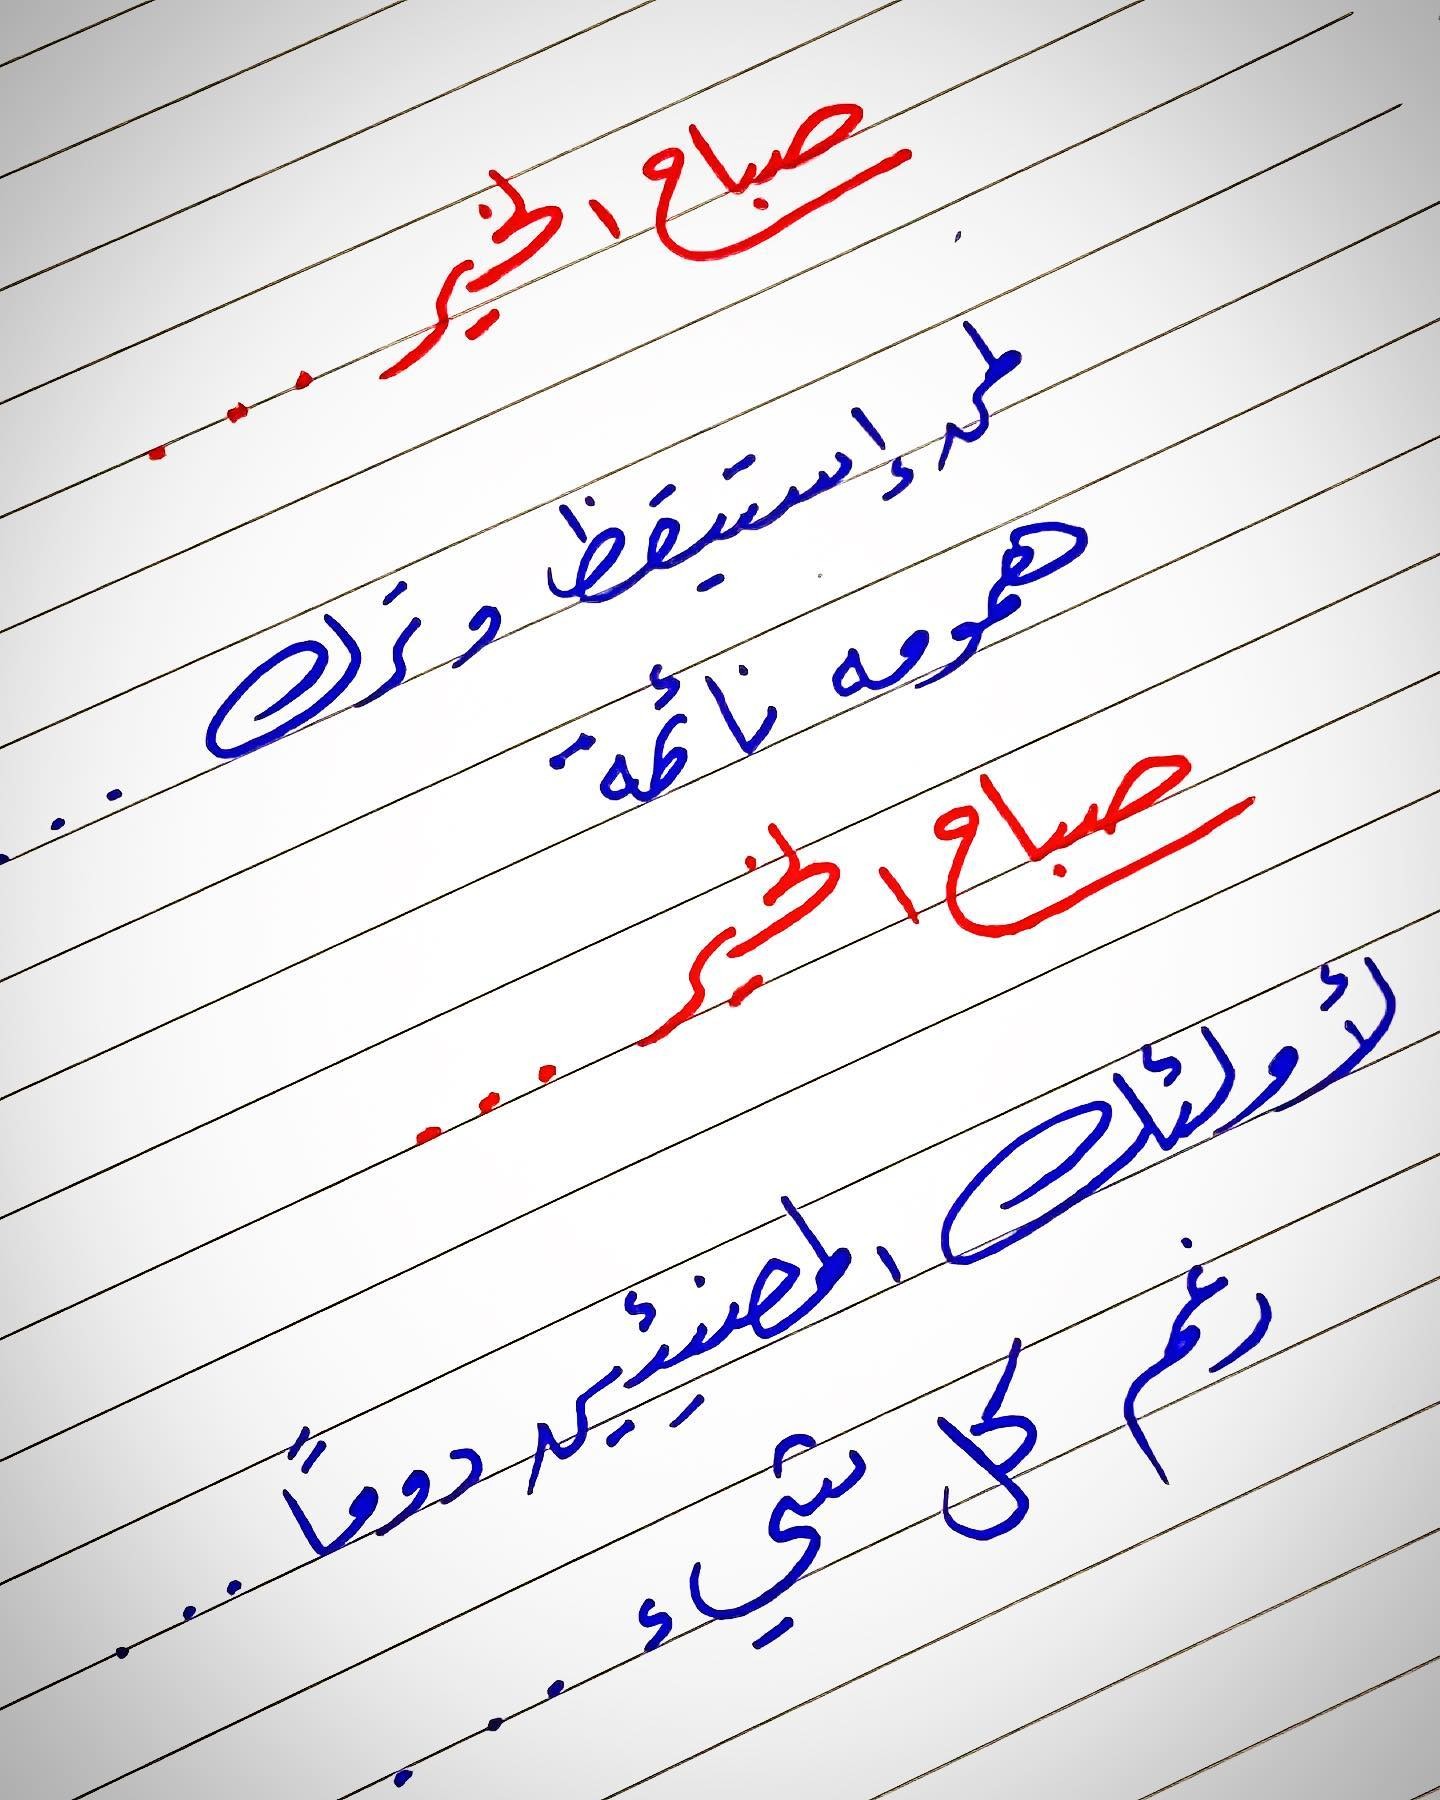 صباح الخير ...
لمن إستيقظ وترك ...
همومه نائمة
صباح الخير ...
لأولئك المضيئين دوماً ...
رغم كل شيء ...